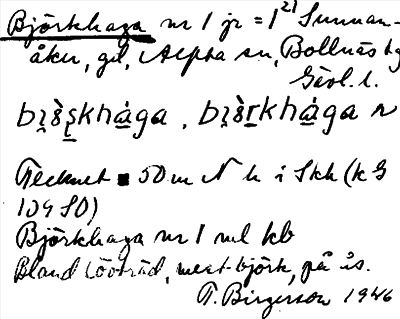 Björkhaga nr 1 jr = 1²¹ Sunnan-
åker, gd, Alfta sn, Bollnäs tg
Gävl. l.
Tecknet 50 m N h i Skh (k G
109 SO)
Björkhaga nr 1 ml kb
Bland lövträd, mest björk, på ås.
T. Birgerson 1946